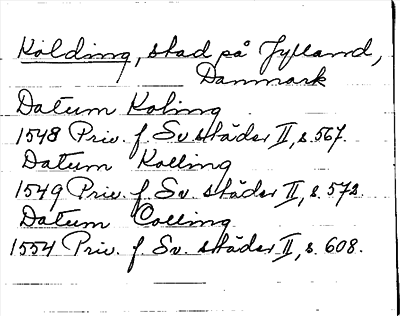 Kolding, stad på Jylland,
Danmark
Datum Koling
1548 Priv. f. Sv städer II, s. 567.
Datum Kolling
1549 Priv. f. Sv. städer II, s. 573.
Datum Colling
1554 Priv. f. Sv. städer II, s. 608.